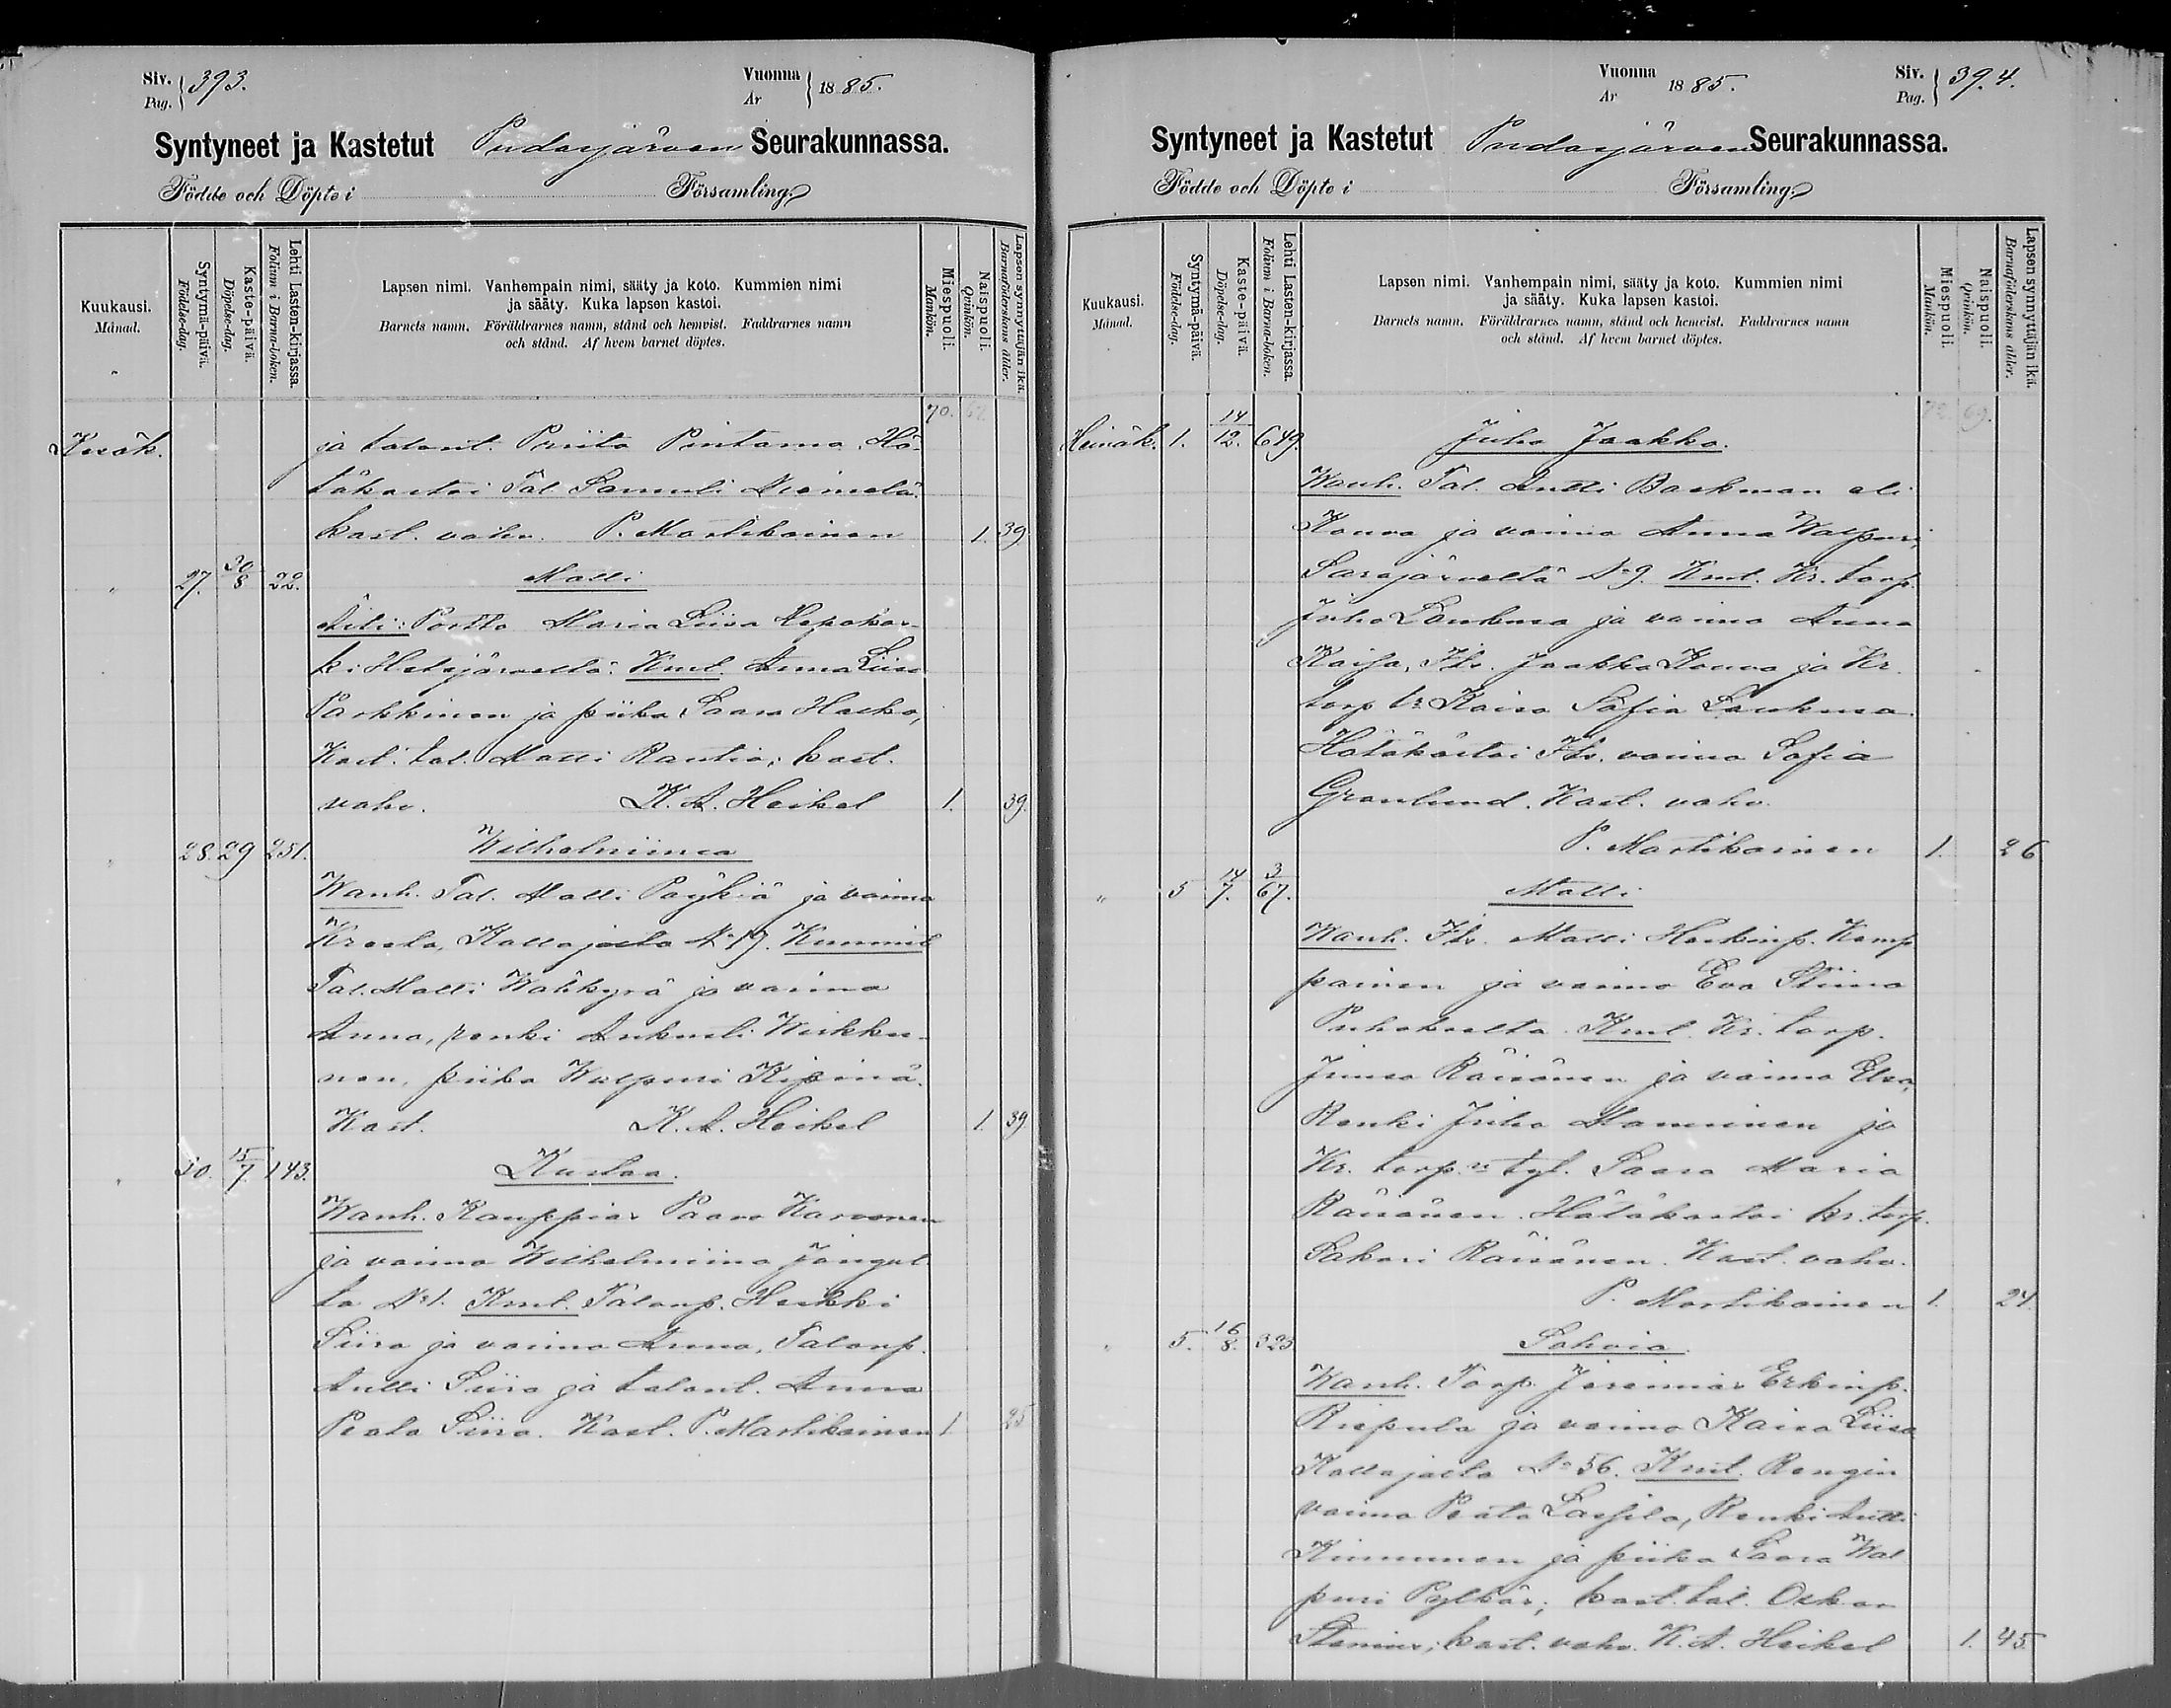 Siv. Pag. 393.
Vuonna År 1885.
Syntyneet ja Kastetut Pudasjärven Seurakunnassa.
Födde och Döpte i Församling.
Kuukausi. Månad.
Syntymä-päivä. Födelse-dag.
Kaste-päivä. Döpelse-dag.
Lehti Lasten-kirjassa. Folium i Barna-boken.
Lapsen nimi. Vanhempain nimi, sääty ja koto. Kummien nimi
ja sääty. Kuka lapsen kastoi.
Barnets namn. Föräldrarnes namn, stånd och hemvist. Faddrarnes namn
och stånd. Af hvem barnet döptes.
Miespuoli. Mankön.
Naispuoli. Qvinkön.
Lapsen synnyttäjän ikä. Barnaföderskans ålder.
70. 67.
Kesäk. ja talont. Priita Pintamo. Hä-
täkastoi Tal. Samuli Niemelä.
kast. vahv. P. Martikainen 1. 39.
" 27. 30/8 22. Matti
Äiti: Portto Maria Liisa Hepokan-
ki Hetejärveltä. Kmt. Anna Liisa
Parkkinen ja piika Saara Haeko,
Kast. tal. Matti Rautio; kast.
vahv. K. A. Heikel 1. 39.
" 28. 29 251. Wilhelmiina
Wanh. Tal. Matti Päykiä ja vaimo
Kreeta, Kollajalta No 17. Kummit
Tal. Matti Wähkyrä ja vaimo
Anna, renki Aukusti Wirkku-
nen, piika Walpuri Kipinä.
Kast. K. A. Heikel 1. 39.
" 30. 15/7. 143. Kustaa.
Wanh. Kauppias Paavo Karvonen
ja vaimo Wilhelmiina Jongul
ta No 1. Kmt. Talonp. Heikki
Siira ja vaimo Anna, Talonp.
Antti Siira ja talont. Anna
Peata Siira. Kast. P. Martikainen 1 25
Vuonna År 1885.
Siv. Pag. 394.
Syntyneet ja Kastetut Pudasjärven Seurakunnassa.
Födde och Döpte i Församling.
Kuukausi. Månad.
Syntymä-päivä. Födelse-dag.
Kaste-päivä. Döpelse-dag.
Lehti Lasten-kirjassa. Folium i Barna-boken.
Lapsen nimi. Vanhempain nimi, sääty ja koto. Kummien nimi
ja sääty. Kuka lapsen kastoi.
Barnets namn. Föräldrarnes namn, stånd och hemvist. Faddrarnes namn
och stånd. Af hvem barnet döptes.
Miespuoli. Mankön.
Naispuoli. Qvinkön.
Lapsen synnyttäjän ikä. Barnaföderskans ålder.
72. 69.
Heinäk. 1. 14/12. 649. Juho Jaakko.
Wanh. Tal. Antti Backman eli
Kouva ja vaimo Anna Walpuri,
Sarajärveltä No 9. Kmt. Kr. torp.
Juho Laukusa ja vaimo Anna
Kaisa, Its. Jaakko Kouva ja Kr.
torp. tr Kaisa Sofia Laukusa.
Hätäkastoi Its. vaimo Sofia
Granlund. Kast. vahv.
P. Martikainen 1. 26
" 5 14/7. 3/67. Matti
Wanh. Its. Matti Heikinp. Kemp
painen ja vaimo Eva Stiina
Puhokselta. Kmt. Kr. torp.
Junso Räisänen ja vaimo Elsa,
Renki Juho Manninen ja
Kr. torp. n tyt. Saara Maria
Räisänen. Hätäkastoi kr. torp.
Sakari Räisänen. Kast. vahv.
P. Martikainen 1. 24.
" 5. 16/8. 323 Sohvia.
Wanh. Torp. Jeremias Erkinp.
Riepula ja vaimo Kaisa Liisa
Kollajalta No 56. Kmt. Rengin
vaimo Peata Lassila, Renki Antti
Kinnunen ja piika Saara Wal
puri Pylkäs; kast. tal. Oskar
Stenius; kast. vahv. K. A. Heikel 1. 45.